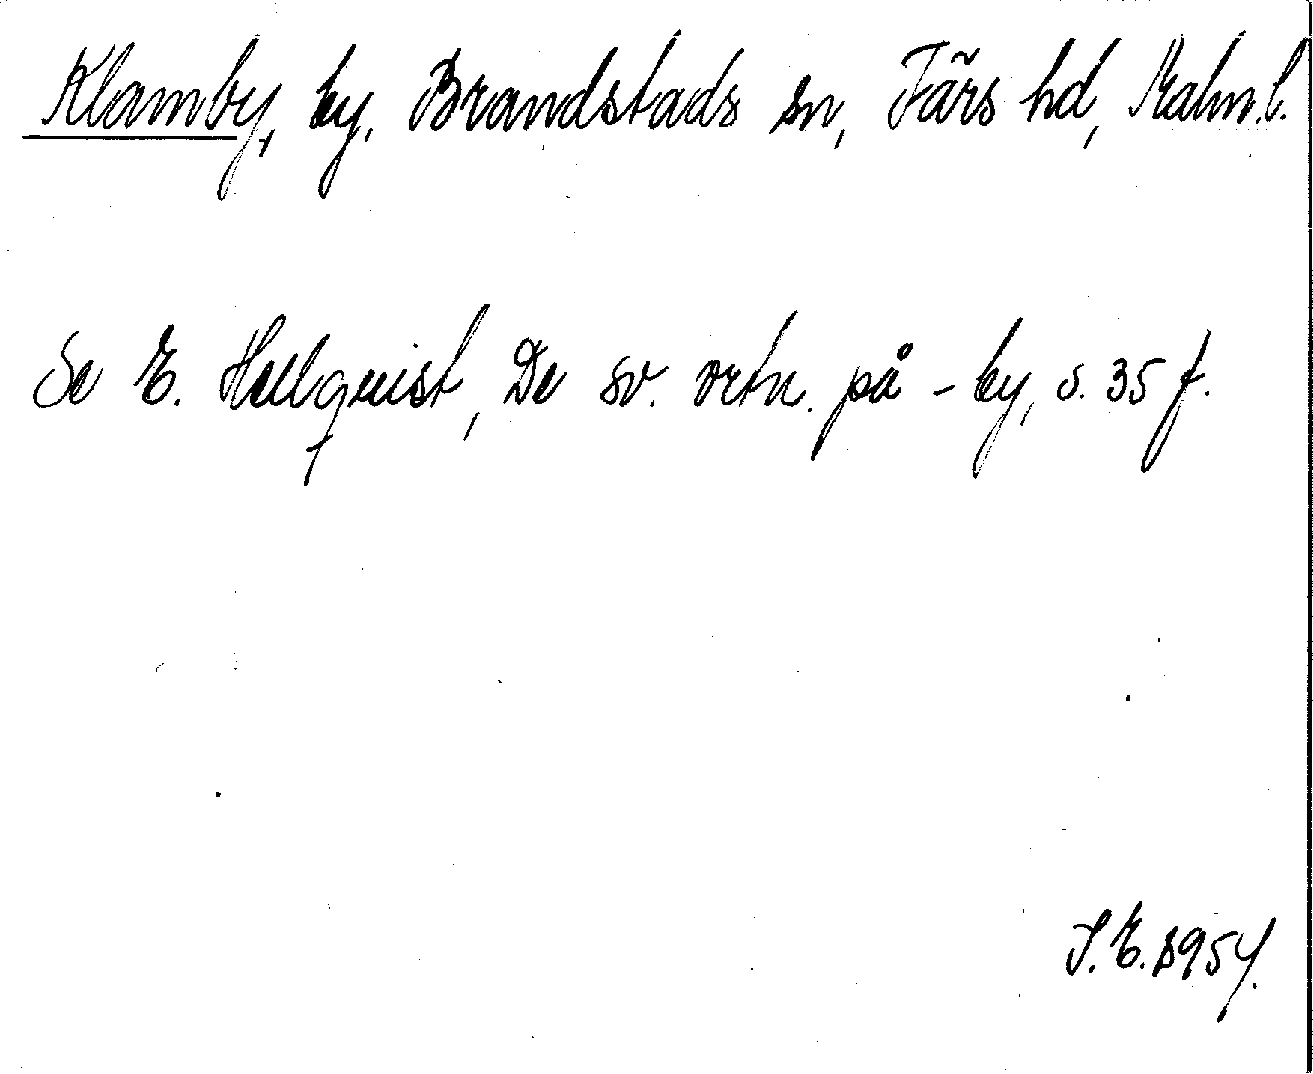 Klamby, by, Brandstads sn, Färs hd, Malm.l.
Se E. Hellquist, De sv. ortn. på -by, s. 35 f.
S.E. 1954.